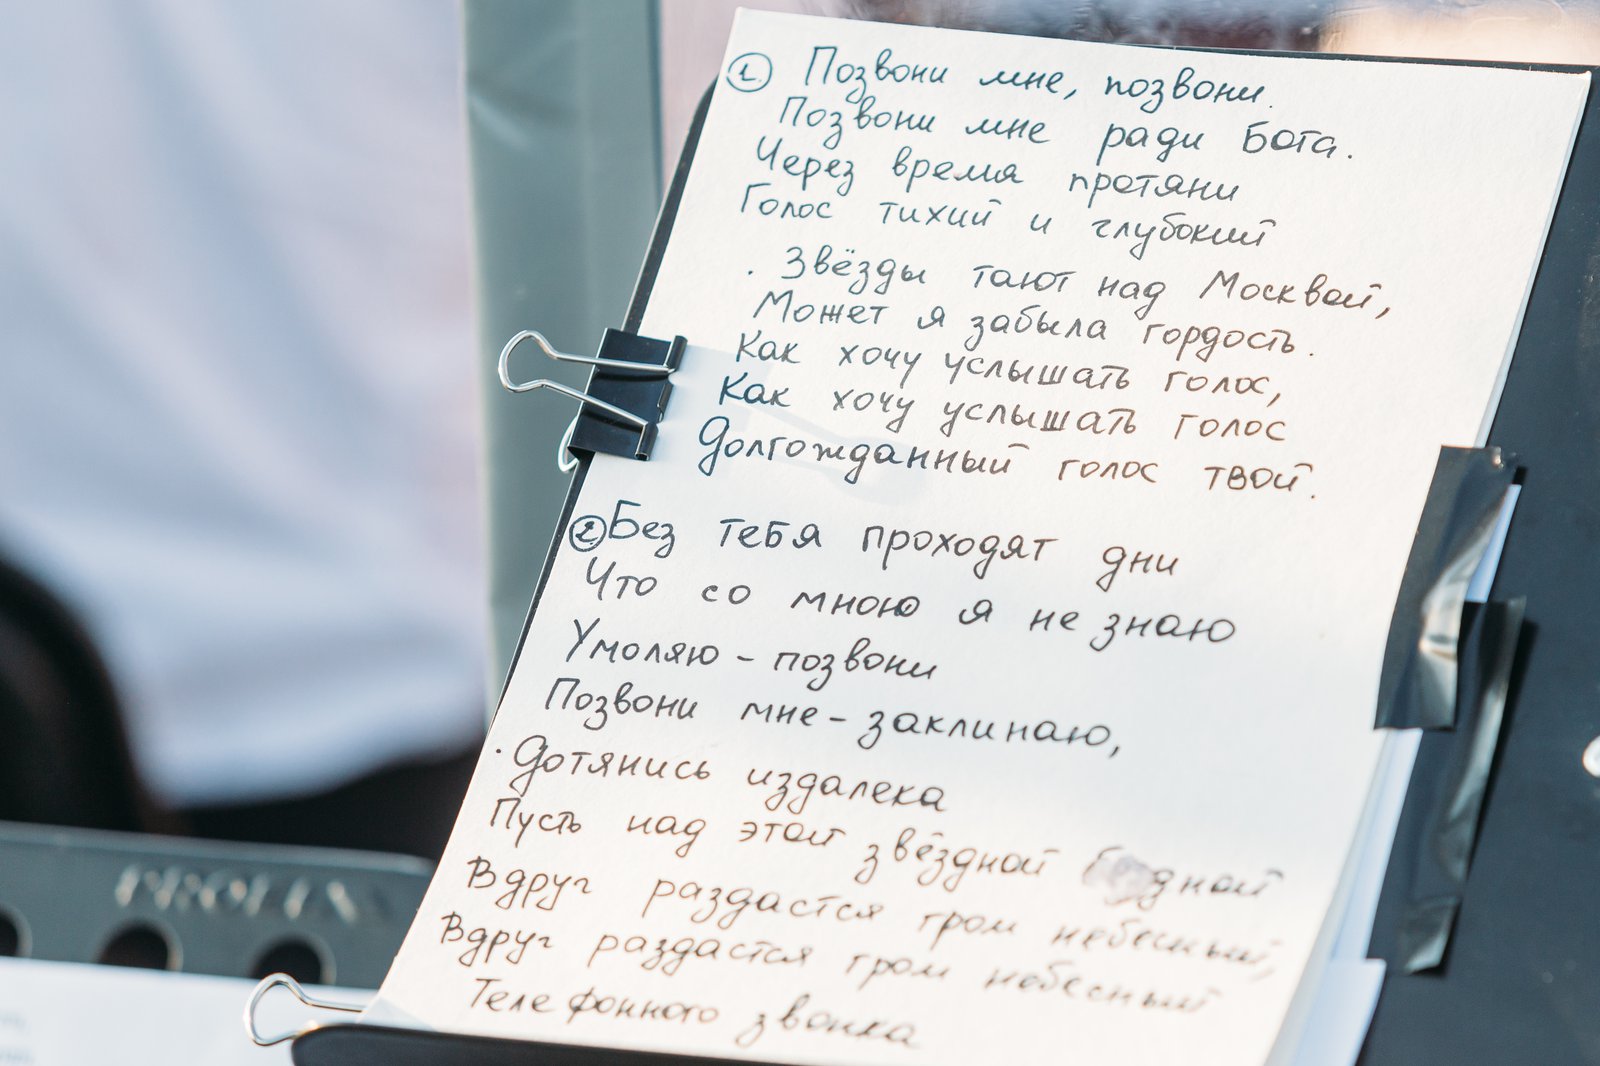 1. Позвони мне, позвони.
Позвони мне ради Бога.
Через время протяни
Голос тихий и глубокий
. Звёзды тают над Москвой,
Может я забыла гордость.
Как хочу услышать голос,
Как хочу услышать голос
Долгожданный голос твой.
2. Без тебя проходят дни
Что со мною я не знаю
Умоляю - позвони
Позвони мне - заклинаю,
. Дотянись издалека
Пусть над этой звёздной
Вдруг раздастся гром небесный,
Вдруг раздастся гром небесный
Телефонного звонка
PROLINE